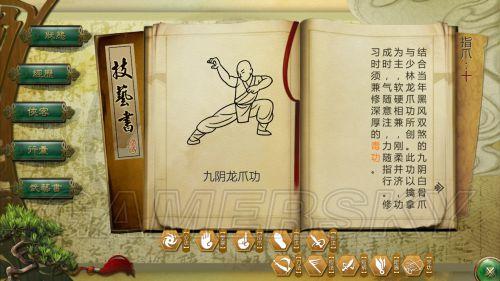 狀態
經歷
俠客
行囊
武藝書
技藝書
九阴龙爪功
指爪：十
结合当年黑风双煞的九阴白骨爪
与少林龙爪功所创。此功以擒拿
为主，软硬相兼，刚柔并济，功
成时，气随意注，力随指行，修
习时须兼修深厚的毒功。
GAMERSKY